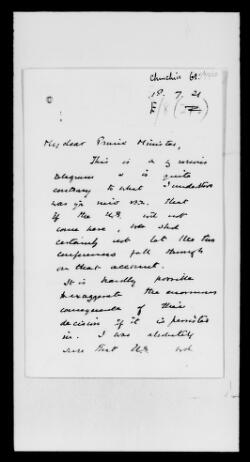 Churchill
18. 7. 21
My dear Prime Minister,
This is a g serious
telegram & is quite
contrary to what I understood
was yr mind viz. that
if the U.S. will not
come here, we shd
certainly not let the
conference fall through
on that account.
It is hardly possible
to exaggerate the enormous
consequence of their
decision if it is persisted
in. I was absolutely
sure that U.S. wd